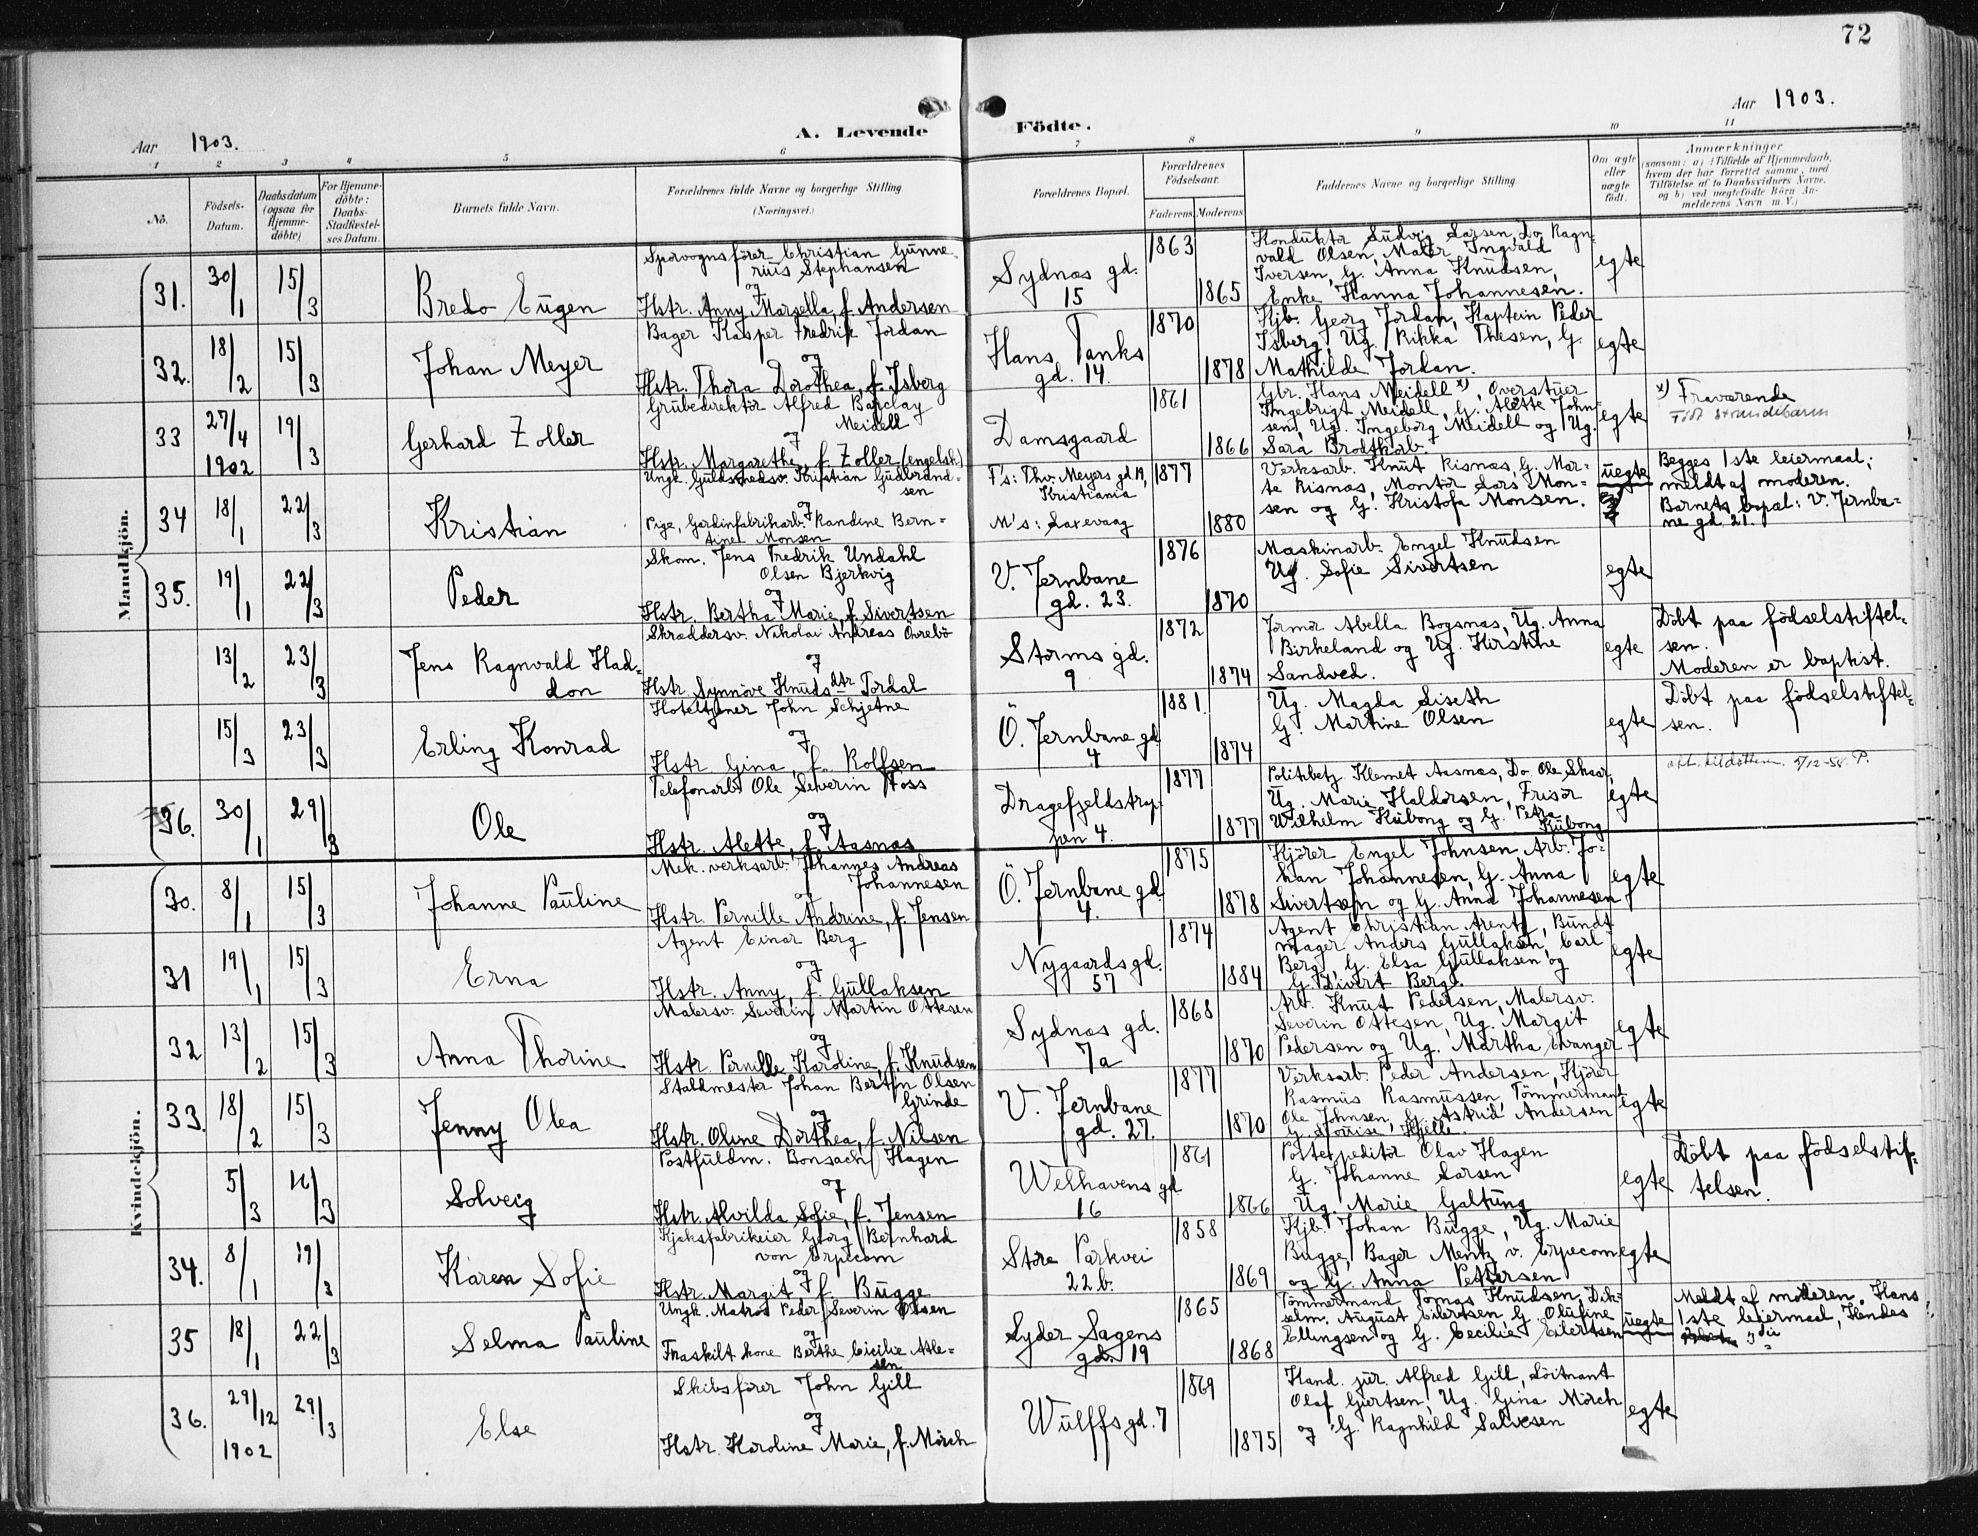 72
Aar 1903.
A. Levende Födte.
Aar 1903.
1 2 3 4 5 6 7 8 9 10 11
No.
Födsels-Datum.
Daabsdatum (ogsaa for Hjemme-döbte)
For Hjemme-döbte: Daabs-Stadfæstel-ses Datum.
Barnets fulde Navn.
Forældrenes fulde Navne og borgerlige Stilling
(Næringsvei.)
Forældrenes Bopæl.
Forældrenes Fødselsaar.
Faderens Moderens
Faddernes Navne og borgerlige Stilling.
Om ægte eller uægte födt.
Anmærkninger
(saasom: a) i Tilfælde af Hjemmedaab,
hvem der har forrettet samme, med
Tilföielse af to Daabsvidners Navne,
og b) ved uægtefödte Börn An-
melderens Navn m. V.)
Mandkjön.
31. 30/1 15/3 Bredo Eugen
Sporvognsfører Christian Gunne-
rius Stephansen
og
Hstr. Anny Marsella, f. Andersen
Sydnæs gd.
15
1863
1865
Konduktør Ludvig Larsen, Do Ragn-
vald Olsen, Maler Ingvald
Iversen, G. Anna Knudsen,
Enke Hanna Johannesen.
egte
32. 18/2 15/3 Johan Meyer
Bager Kasper Fredrik Jordan
og
Hstr. Thora Dorothea, f. Isberg
Hans Tanks
gd. 14.
1870
1878
Kjb. Georg Jordan, Kaptein Peder
Isberg, Ug. Rikka Thesen, G.
Mathilde Jordan.
egte
33 27/4 1902 19/3 Gerhard Zoller
Grubedirektör Alfred Barclay
Meidell
og
Hstr. Margarethe, f. Zoller (engelsk.)
Damsgaard
1861
1866
Gbr. Hans Meidell x), Overstuer
Ingebrigt Meidell, G. Alette John-
sen, Ug. Ingeborg Meidell og Ug.
Sara Brodtkorb.
egte
x) Fraværende
34 18/1 22/3 Kristian
Ungk. Guldsmedsv. Kristian Gudbrand-
sen
og
Pige, Gardinfabrikarb. Randine Bern-
tine Monsen
F's: Thv. Meyers gd. 19,
Kristiania
M's: Laxevaag
1877
1880
Verksarb. Knut Risnæs, G. Mar-
te Risnæs, Montør Lars Mon-
sen og G. Kristofa Monsen.
uegte
Begges 1ste leiermaal;
meldt af moderen.
Barnets bopæl: V. Jernba-
ne gd. 21.
35. 19/1 22/3 Peder
Skom. Jens Fredrik Undahl
Olsen Bjerkvig
og
Hstr. Bertha Marie, f. Sivertsen
V. Jernbane
gd. 23.
1876
1870
Maskinarb. Engel Knudsen
Ug. Sofie Sivertsen
egte
13/2 23/3 Jens Ragnvald Had-
don
Skræddersv. Nikolai Andreas Övrebö
og
Hstr. Synnöve Knudsdtr Tordal
Storms gd.
9
1872
1874
Jormor Abella Bogsnæs, Ug. Anna
Birkeland og Ug. Kirstine
Sandved.
egte
Döbt paa födselstiftel-
sen.
Moderen er baptist.
15/3 23/3 Erling Konrad
Hoteltjener John Schjetne
og
Hstr. Gina, f. Rolfsen
Ö. Jernbane gd
4
1881.
1874
Ug. Magda Siseth
G. Martine Olsen
egte
Döbt paa födselstiftel-
sen.
36. 30/1 29/3 Ole
Telefonarb. Ole Severin Foss
og
Hstr. Alette, f. Aasnæs
Dragefjeldstrap-
pen 4.
1877
1877
Politibetj. Klemet Aasnæs, Do Ole Skaar,
Ug. Marie Haldorsen, Frisör
Wilhelm Kubong og G. Petra
Kubong
egte
Kvindekjön.
30. 8/1 15/3 Johanne Pauline
Mek. verksarb. Johannes Andreas
Johannesen
og
Hstr. Pernille Andrine, f. Jensen
Ö. Jernbane gd
4.
1875
1878
Kjörer Engel Johnsen, Arb. Jo-
han Johannesen, G. Anna
Sivertsen og G. Anna Johannesen
egte
31 19/1 15/3 Erna
Agent Einar Berg
og
Hstr. Anny, f. Gullaksen
Nygaards gd.
57
1874
1884
Agent Christian Arentz, Bundt
mager Anders Gullaksen, Carl
Berg, G. Elsa Gullaksen og
G. Sivert Berge.
egte
32 13/2 15/3 Anna Thorine
Malersv. Severin Martin Ottesen
og
Hstr. Pernille Karoline, f. Knudsen
Sydnæs gd.
7a
1868
1870
Arb. Knut Pedersen, Malersv.
Severin Ottesen, Ug. Margit
Pedersen og Ug. Martha Evanger
egte
33. 18/2 15/3 Jenny Olea
Staldmester Johan Bertin Olsen
Grinde
og
Hstr. Oline Dorthea, f. Nilsen
V. Jernbane
gd. 27.
1877
1870
Verksarb. Peder Andersen, Kjörer
Rasmus Rasmussen, Tömmermand
Ole Johnsen, G. Astrid Andersen
G. Louise Kjille.
egte
5/3 16/3 Solveig
Postfuldm. Bonsach Hagen
og
Hstr. Alvilda Sofie, f. Jensen
Welhavens gd
16
1861
1866
Postexpeditör Olav Hagen
G. Johanne Larsen
Ug. Marie Galtung
egte
Döbt paa födselstif-
telsen.
34. 8/1 19/3 Karen Sofie
Kjæksfabrikeier Georg Bernhard
von Erpecom
og
Hstr. Margit f. Bugge
Store Parkvei
22b.
1858
1869
Kjb. Johan Bugge, Ug. Marie
Bugge, Bager Mentz v. Erpecom
og G. Anna Pettersen
egte
35 18/1 22/3 Selma Pauline
Ungk. Matros Peder Severin Olsen
og
Fraskilt kone Berthe Cicilie Atle-
sen
Lyder Sagens
gd. 19
1865
1868
Tömmermand Tomas Knudsen, Dik-
selm. August Eilertsen, G. Olufine
Ellingsen og G. Cecilie Eilertsen
uegte
Meldt af moderen. Hans
1ste leiermaal, Hendes
36. 29/12 1902 29/3 Else
Skibsförer John Gill
og
Hstr. Karoline Marie, f. Mörch
Wulffs gd. 7
1869
1875
Hand. jur. Alfred Gill, Löitnant
Olaf Gjertsen, Ug. Gina Mörch
og G. Ragnhild Salvesen
egte